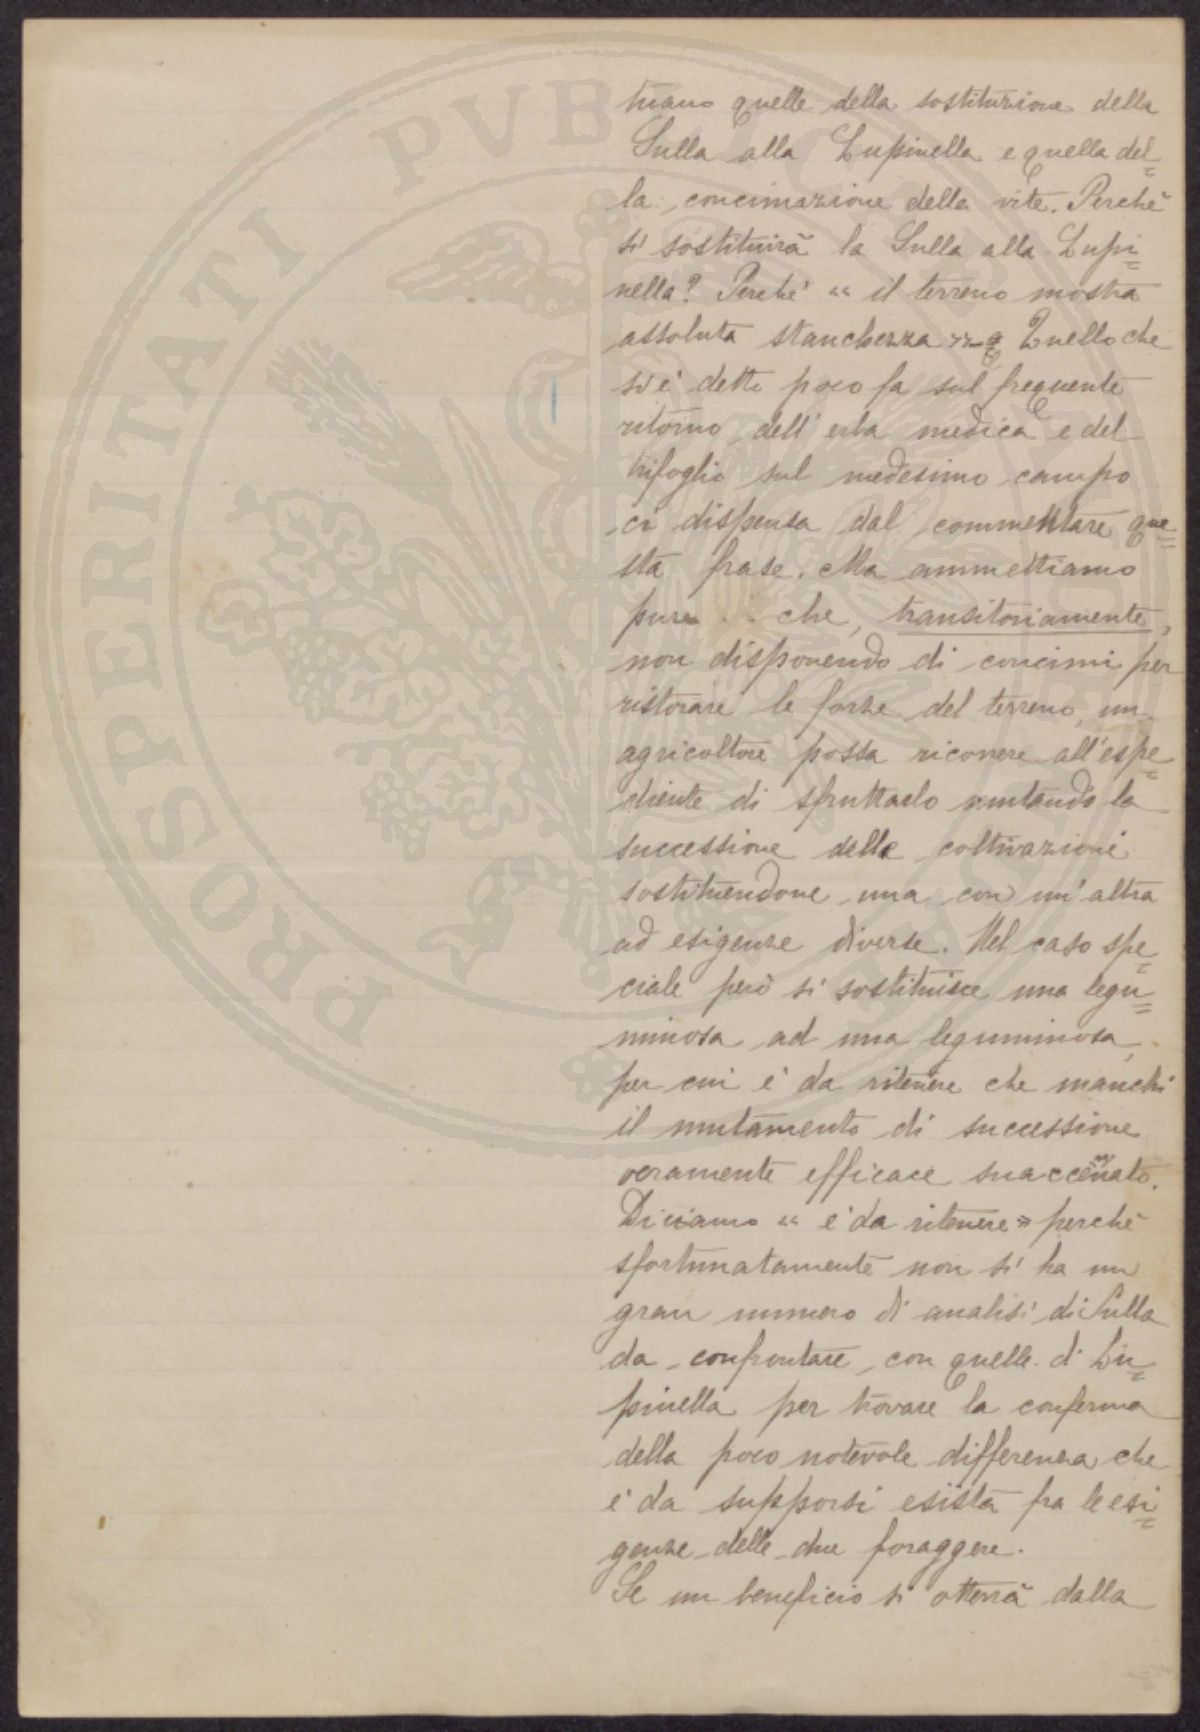 triamo quelle della sostituzione della
Sulla alla Lupinella e quella del=
la concimazione della vite. Perchè
si sostituirà la Sulla alla Lupi=
nella? Perchè " il terreno mostra
assoluta stanchezza " Quello che
si è detto poco fa sul frequente
ritorno dell'erba medica e del
trifoglio sul medesimo campo
ci dispensa dal commentare que=
sta frase. Ma ammettiamo
pure che, transitoriamente,
non disponendo di concimi per
ristorare le forze del terreno, un
agricoltore possa ricorrere all'espe=
diente di sfruttarlo mutando la
successione delle coltivazioni
sostituendone una con un'altra
ad esigenze diverse. Nel caso spe=
ciale però si sostituisce una legu=
minosa ad una leguminosa,
per cui è da ritenere che manchi
il mutamento di successione
veramente efficace suaccennato.
Diciamo " è da ritenere " perchè
sfortunatamente non si ha un
gran numero di analisi di Sulla
da confrontare con quelle di Lu=
pinella per trovare la conferma
della poco notevole differenza che
è da supporsi esista fra le esi=
genze delle due foraggere.
Se un beneficio si otterrà dalla
PROSPERITATI PVBLICAE